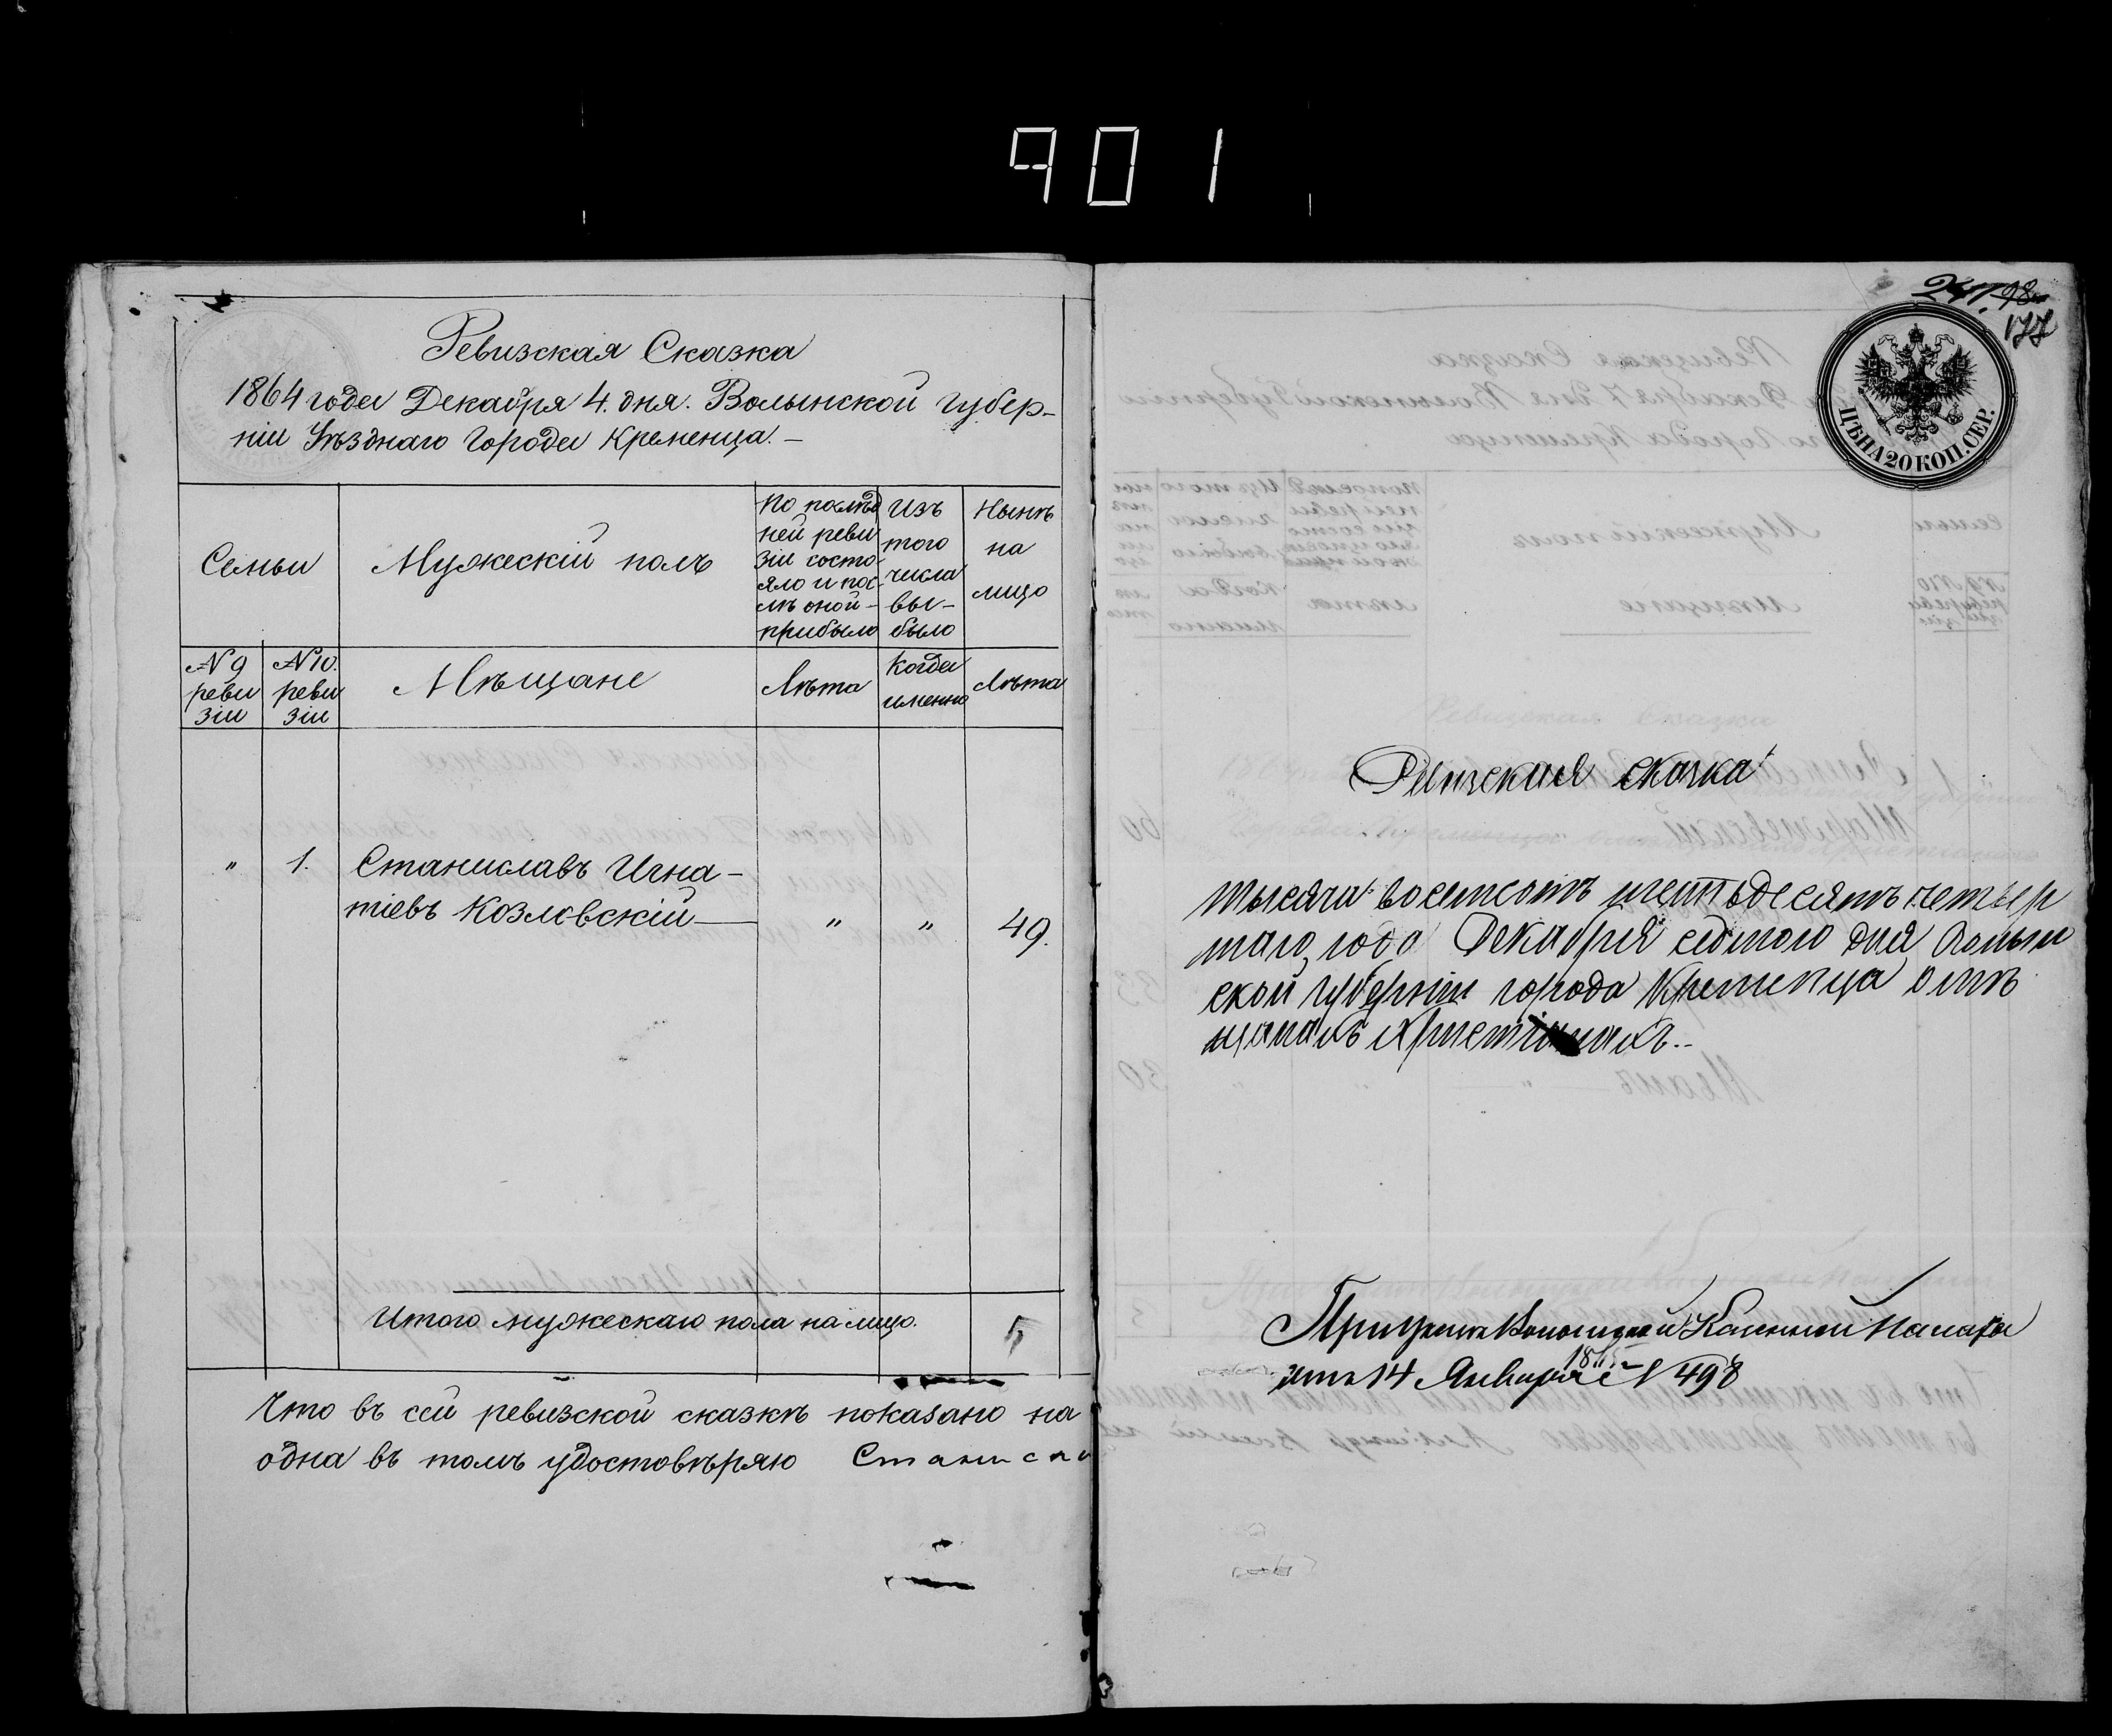 901
Ревизская Сказка
1864 года Декабря 4. дня. Волынской Губер-
ніи Уѣзднаго Города Кременца.-
Семьи
Мужескій полъ
По послѣд
ней реви
зіи состо-
яло и пос-
лѣ оной-
прибыло
Изъ
того
числа
вы-
было
Нынѣ
на
лицо
№ 9
реви
зіи
№ 10.
реви
зіи
Мѣщане
Лѣта
Когда
именно
Лѣта
" 1. Станиславъ Игна-
тіевъ Козловскій — " " 49.
Итого мужескаго пола на лицо.
Что въ сей ревизской сказкѣ показано на
одна въ томъ удостовѣряю Станисла
177
ЦѢНА 20 КОП. СЕР.
Ревизская сказка
тысяча восемсотъ шестьдесятъ четвер
таго года Декабря седмого дня Волын
ской губерніи города Кременца о мѣ
щанахъ христіанахъ.-
При указѣ Волынской Казенной Палаты
отъ 14 Января 1865 № 498